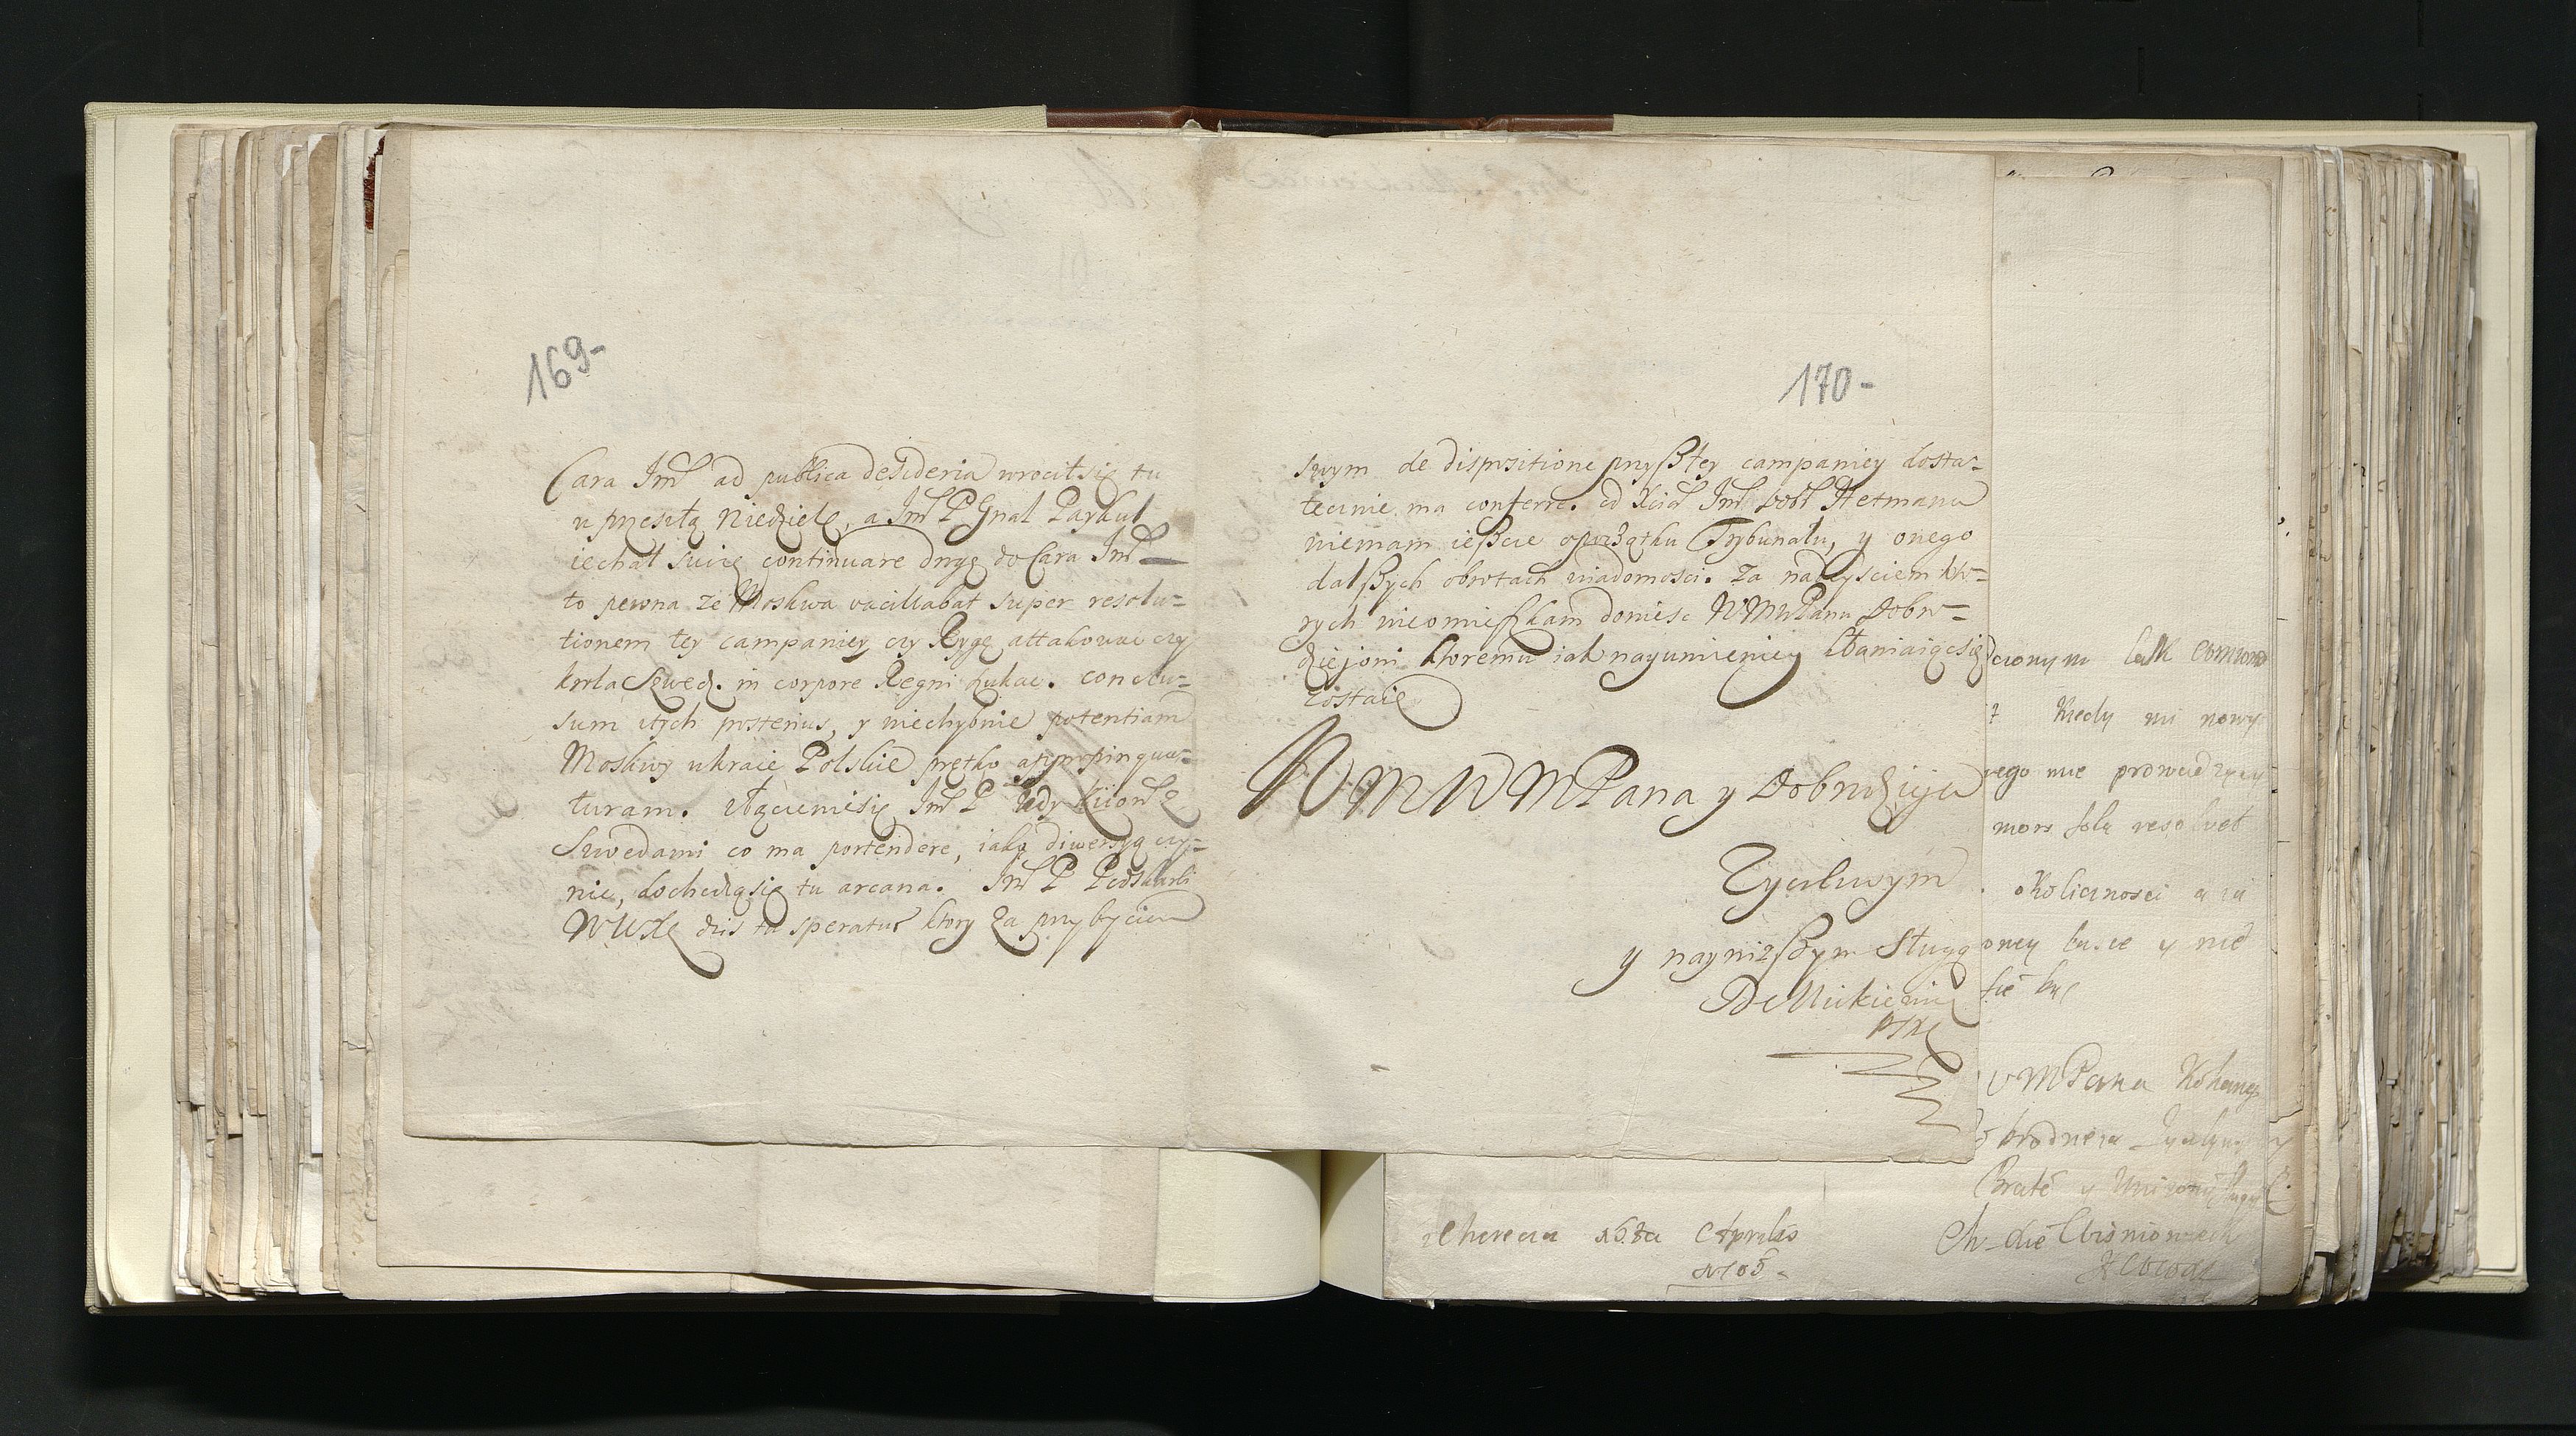 169-
Cara Jmć ad publica desideria wrocił się tu
w przeszłą Niedzielę, a Jmć P Gnał Paykul
iechał swię continuare drogę do Cara Jmć
to pewna ze Moskwa vacillabat super resolu=
tionem tey campaniey czy Rygę attakowac czy
krola Szwedz. in corpore Regni szukac. conclu=
sum tych posterius, y niechybnie potentiam
Moskwy w kraie Polskie prętko appropinqua=
turam. złączenie się Jmć P
Szwedami co ma portendere, iaką diwersyą czy=
nic, dochodzą się tu arcana. Jmć P Podskarbi
WWXL dzis tu speratur ktory za przybyciem
170-
swym de dispositione przyszłey campaniey dosta=
tecznie ma conferre. od Xcia Jmć Hetmana
niemam ieszcze o początku Trybunału, y onego
dalszych obrotach wiadomosci. Za nadeysciem kto=
rych nieomieszkam doniesc WMMPanu Dobro=
dzieiowi ktoremu iak nayunizeniey kłaniaiąc się
zostaię
WMWMPana y Dobrodzieja
Zyczliwym
y nayniższym Sługą
czonym
Kiedy mi nowy
nego nie prowadzący
mors sola resolvet
okolicznosci a za
oney y nie
się
WMPana
brodzieia
Bratē y Unizonÿ Sługa
Aprilis
1705